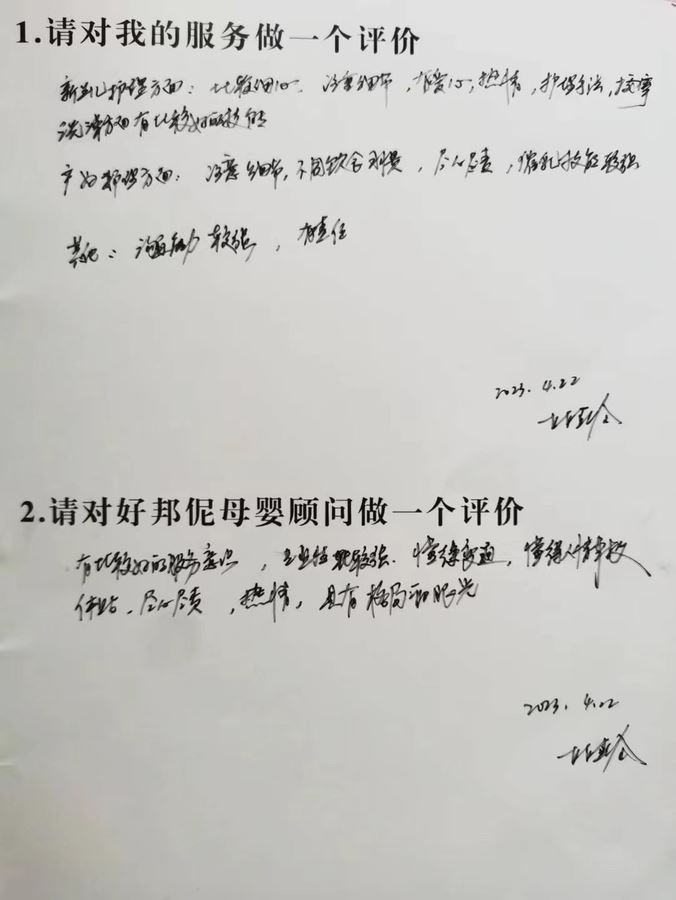 1.请对我的服务做一个评价
新生儿护理方面：比较细心，注重细节，有爱心，热情，护理手法，抚摩
洗澡方面有比较好的技能
产妇护理方面：注意细节，不同饮食习惯，尽心尽责，催乳技能较强
其他：沟通能力较强，有责任
2023.4.22
2.请对好邦伲母婴顾问做一个评价
有比较好的服务意识，专业性较强，懂得变通，懂得人情事故
体贴，尽心尽责，热情，具有格局和眼光
2023.4.22